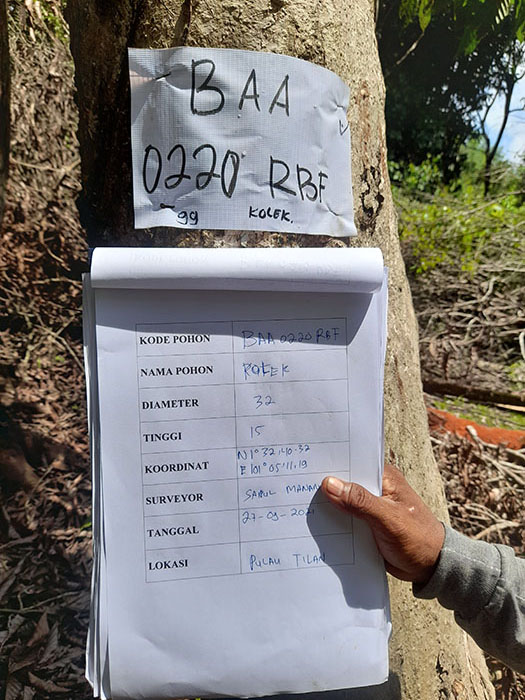 BAA
0220 RBF
99 KOLEK.
KODE POHON BAA 0220 RBF
NAMA POHON KOLEK
DIAMETER 32
TINGGI 15
KOORDINAT N 1° 32'.40.32
E 101° 05'.11.19
SURVEYOR
TANGGAL 27-09-2021
LOKASI PULAU TILAN